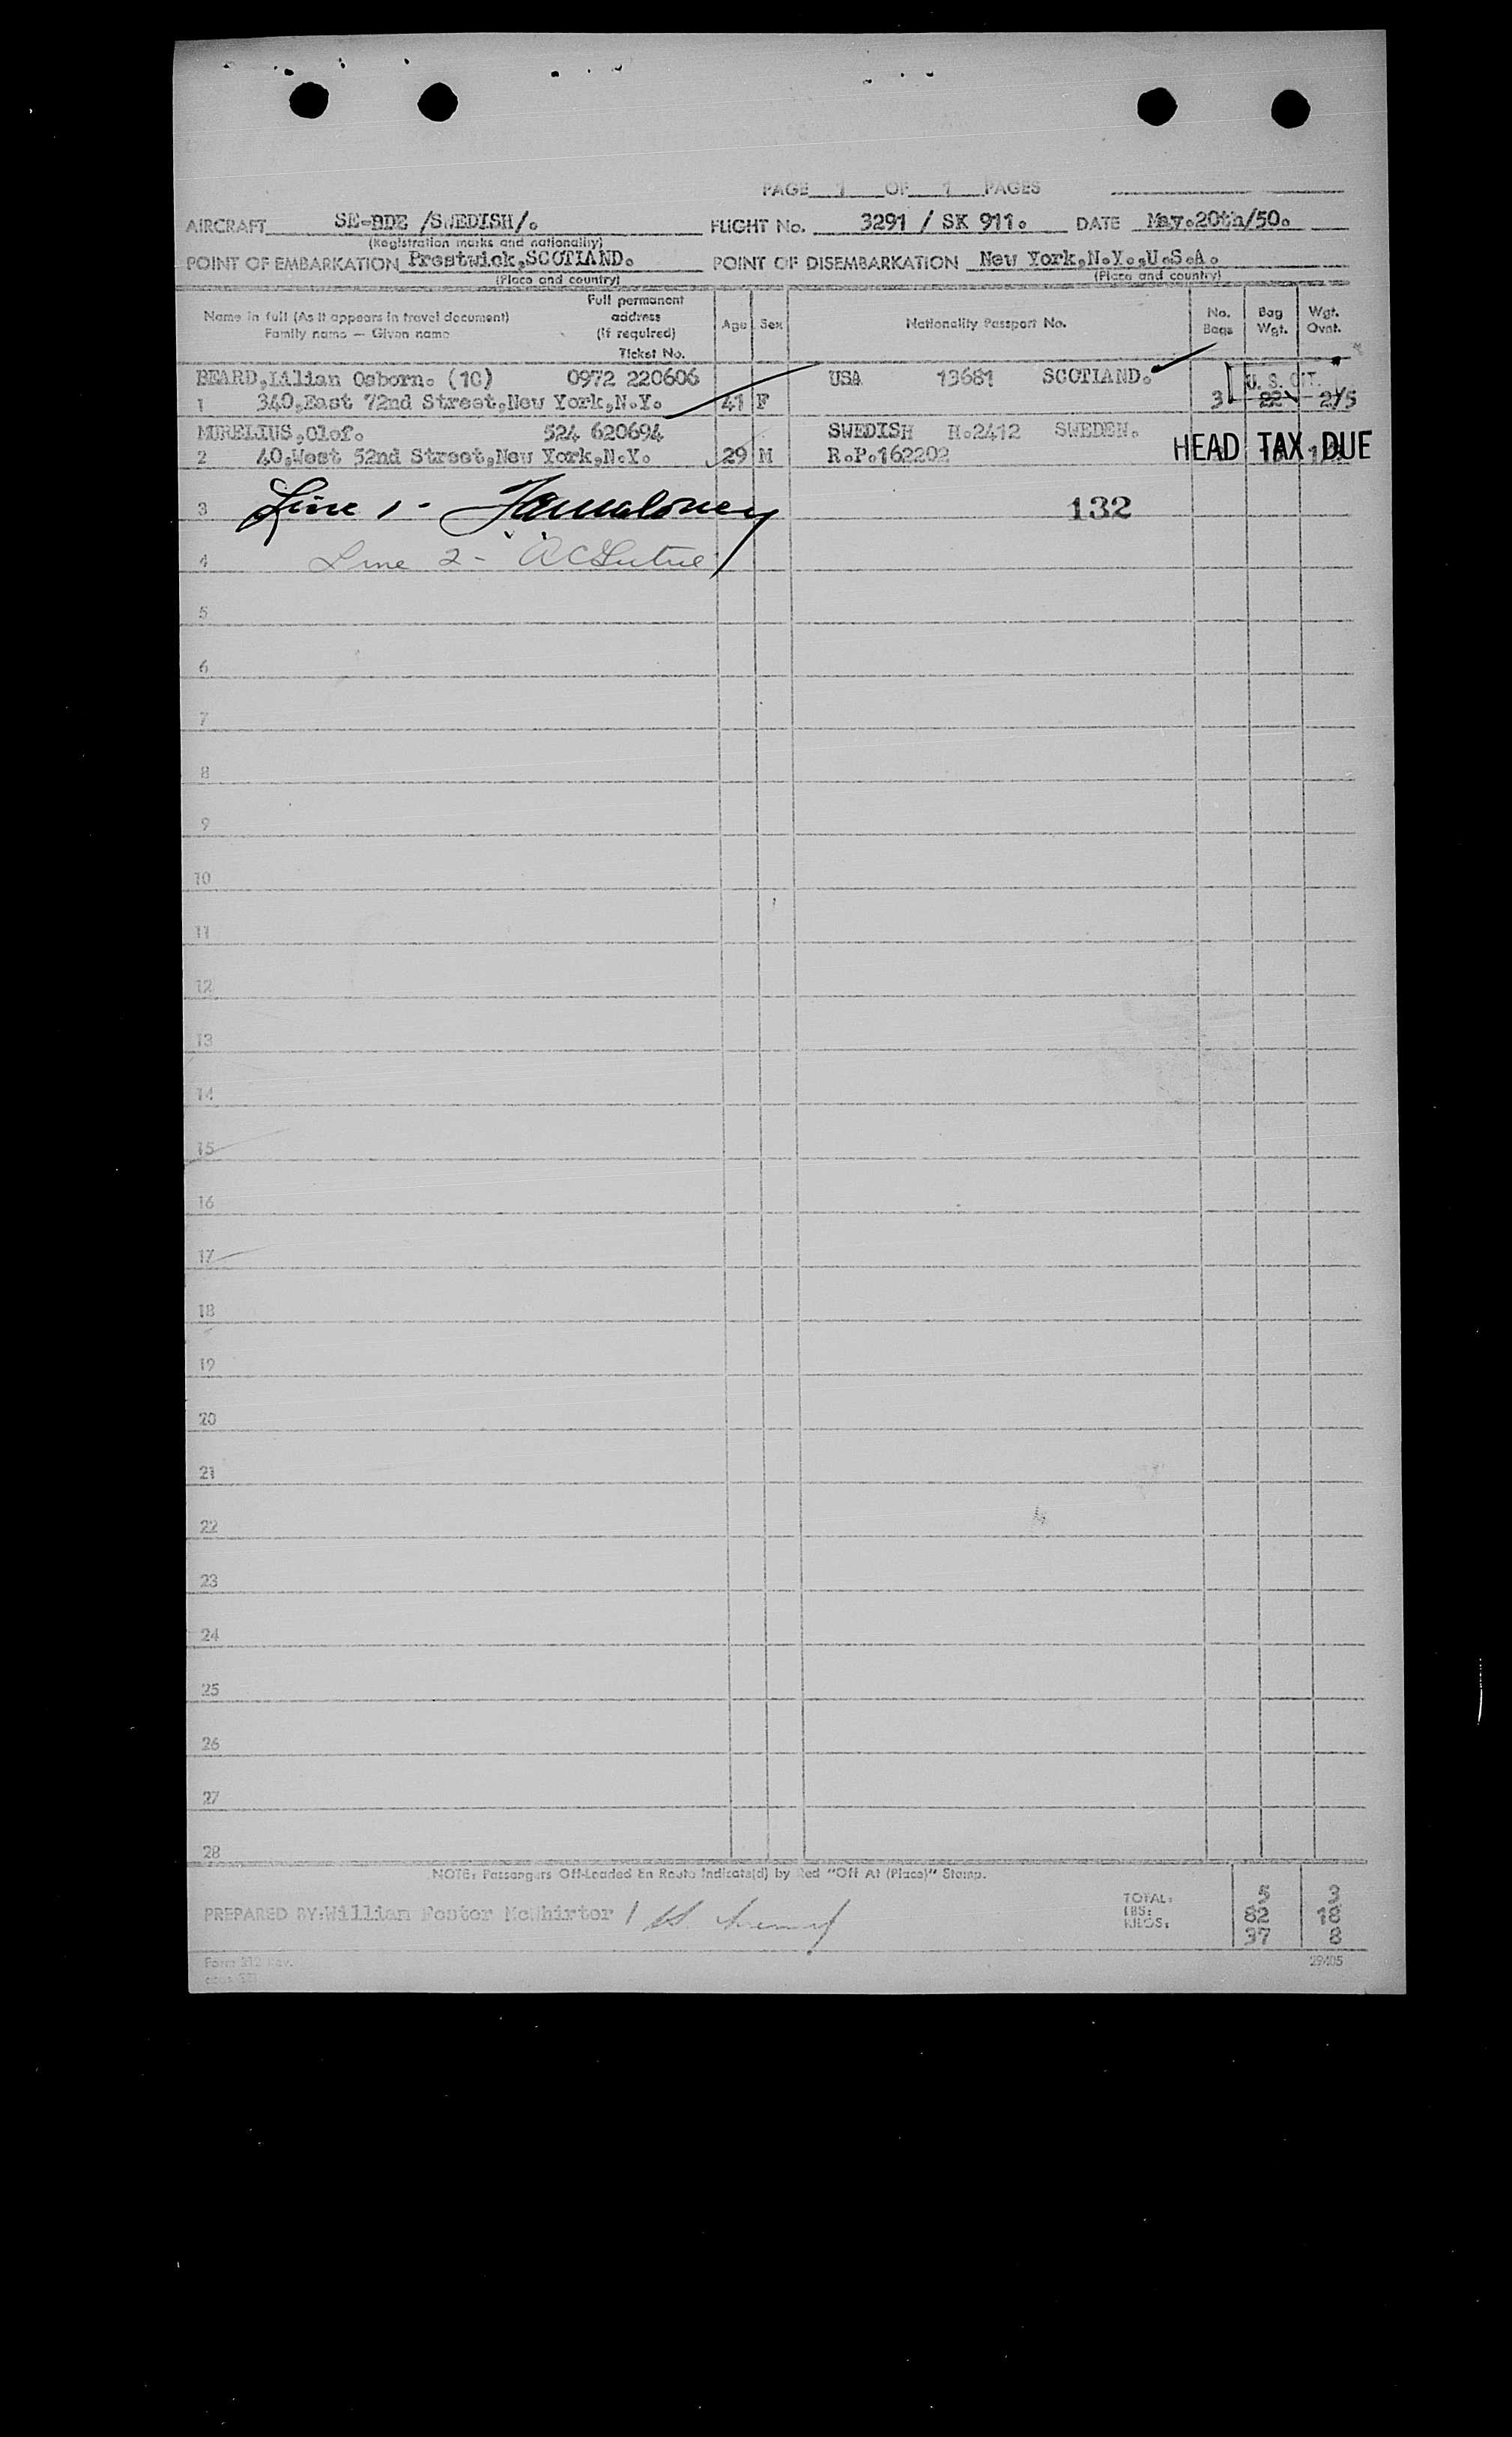 PAGE 1 OF 1 PAGES
AIRCRAFT SE-BDE /SWEDISH/. FLIGHT No. 3291 / SK 911. DATE May.20th/50.
(Registration marks and nationality)
POINT OF EMBARKATION Prestwick,SCOTLAND. POINT OF DISEMBARKATION New York,N.Y.,U.S.A.
(Place and country) (Place and country)
Name in full (As it appears in travel document)
Family name — Given name
Full permanent
address
(if required)
Ticket No.
Age Sex Nationality Passport No.
No.
Bags
Bag
Wgt.
Wgt.
Ovnt.
BEARD,Lilian Osborn. (10) 0972 220606 USA 13681 SCOTLAND. U. S. CIT.
1 340,East 72nd Street,New York,N.Y. 41 F 3 22 2/5
MURELIUS,Olof. 524 620694 SWEDISH H.2412 SWEDEN.
2 40,West 52nd Street,New York,N.Y. 29 M R.P.162202
HEAD TAX DUE
3 Line 1 - 132
4 Line 2 -
5
6
7
8
9
10
11
12
13
14
15
16
17
18
19
20
21
22
23
24
25
26
27
28
NOTE: Passengers Off-Loaded En Route Indicate(d) by Red "Off At (Place)" Stamp.
PREPARED BY: William Foster McWhirter /
TOTAL: 5 3
LBS: 82 18
KILOS: 37 8
Form 312 Rev.
29405